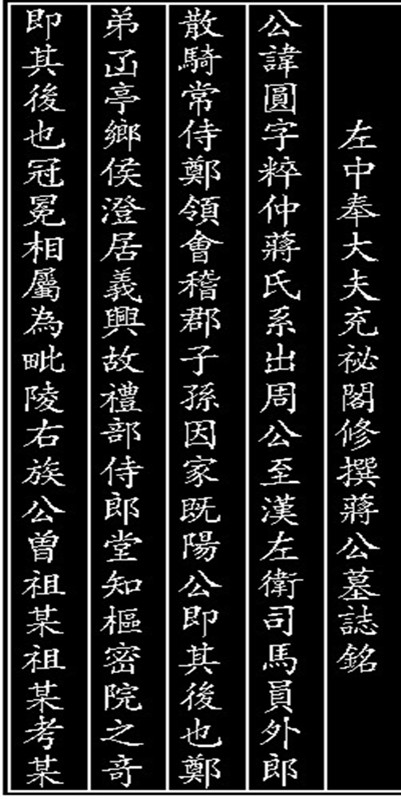 左中奉大夫充祕閣修撰蔣公墓誌銘
公諱圓字粹仲蔣氏系出周公至漢左衛司馬員外郎
散騎常侍鄭領會稽郡子孫因家既陽公即其後也鄭
弟𠙽亭鄉侯澄居義興故禮部侍郎堂知樞密院之竒
即其後也冠冕相屬為毗陵右族公曽祖某祖某考某